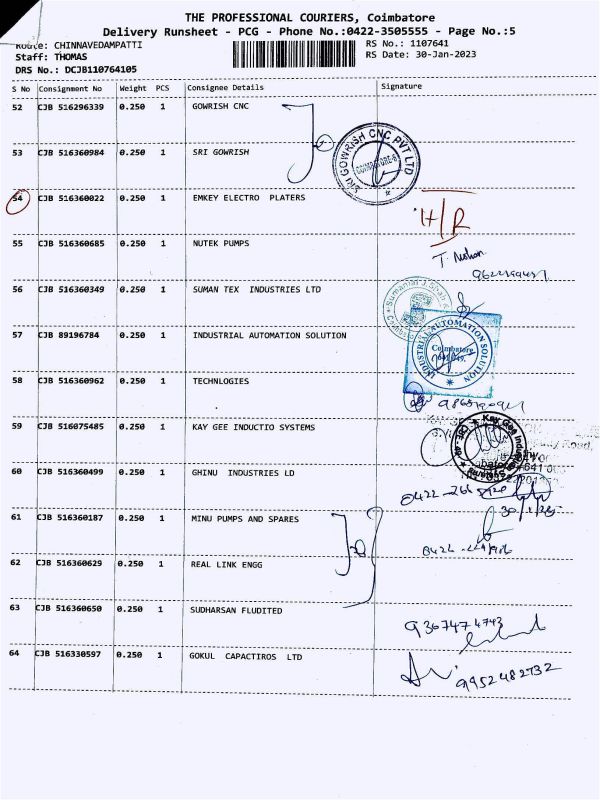 THE PROFESSIONAL COURIERS, Coimbatore
Delivery Runsheet - PCG - Phone No.:0422-3505555 - Page No.:5
Route: CHINNAVEDAMPATTI
RS No.: 1107641
Staff: THOMAS
RS Date: 30-Jan-2023
DRS No.: DCJB110764105
S No Consignment No Weight PCS Consignee Details Signature
52 CJB 516296339 0.250 1 GOWRISH CNC
53 CJB 516360984 0.250 1 SRI GOWRISH
SRI GOWRISH CNC PVT LTD
COIMBATORE-6
54 CJB 516360022 0.250 1 EMKEY ELECTRO PLATERS
H/R
55 CJB 516360685 0.250 1 NUTEK PUMPS
56 CJB 516360349 0.250 1 SUMAN TEX INDUSTRIES LTD
57 CJB 89196784 0.250 1 INDUSTRIAL AUTOMATION SOLUTION
INDUSTRIAL AUTOMATION SOLUTION
Coimbatore
641 049.
58 CJB 516360962 0.250 1 TECHNLOGIES
59 CJB 516075485 0.250 1 KAY GEE INDUCTIO SYSTEMS
Kay Gee
CBE-49
60 CJB 516360499 0.250 1 GHINU INDUSTRIES LD
30/1/23
61 CJB 516360187 0.250 1 MINU PUMPS AND SPARES
62 CJB 516360629 0.250 1 REAL LINK ENGG
63 CJB 516360650 0.250 1 SUDHARSAN FLUDITED
9367474743
64 CJB 516330597 0.250 1 GOKUL CAPACTIROS LTD
9952482732